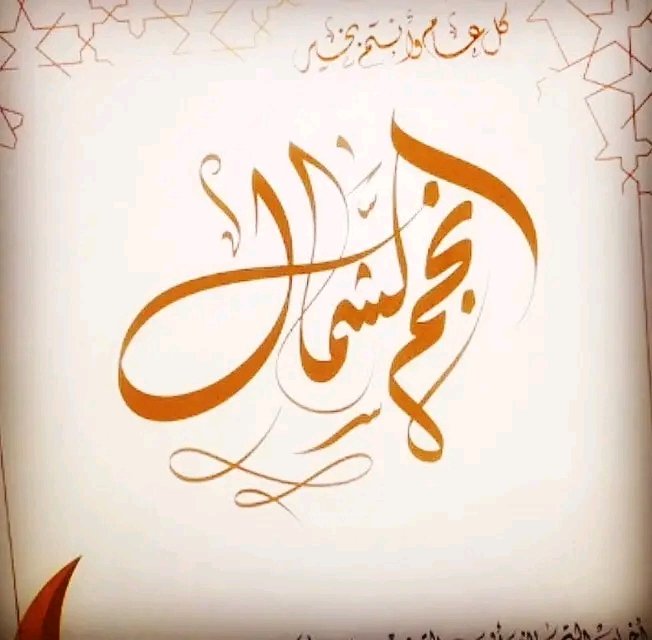 كل عام وانتم بخير
نجم الشمال